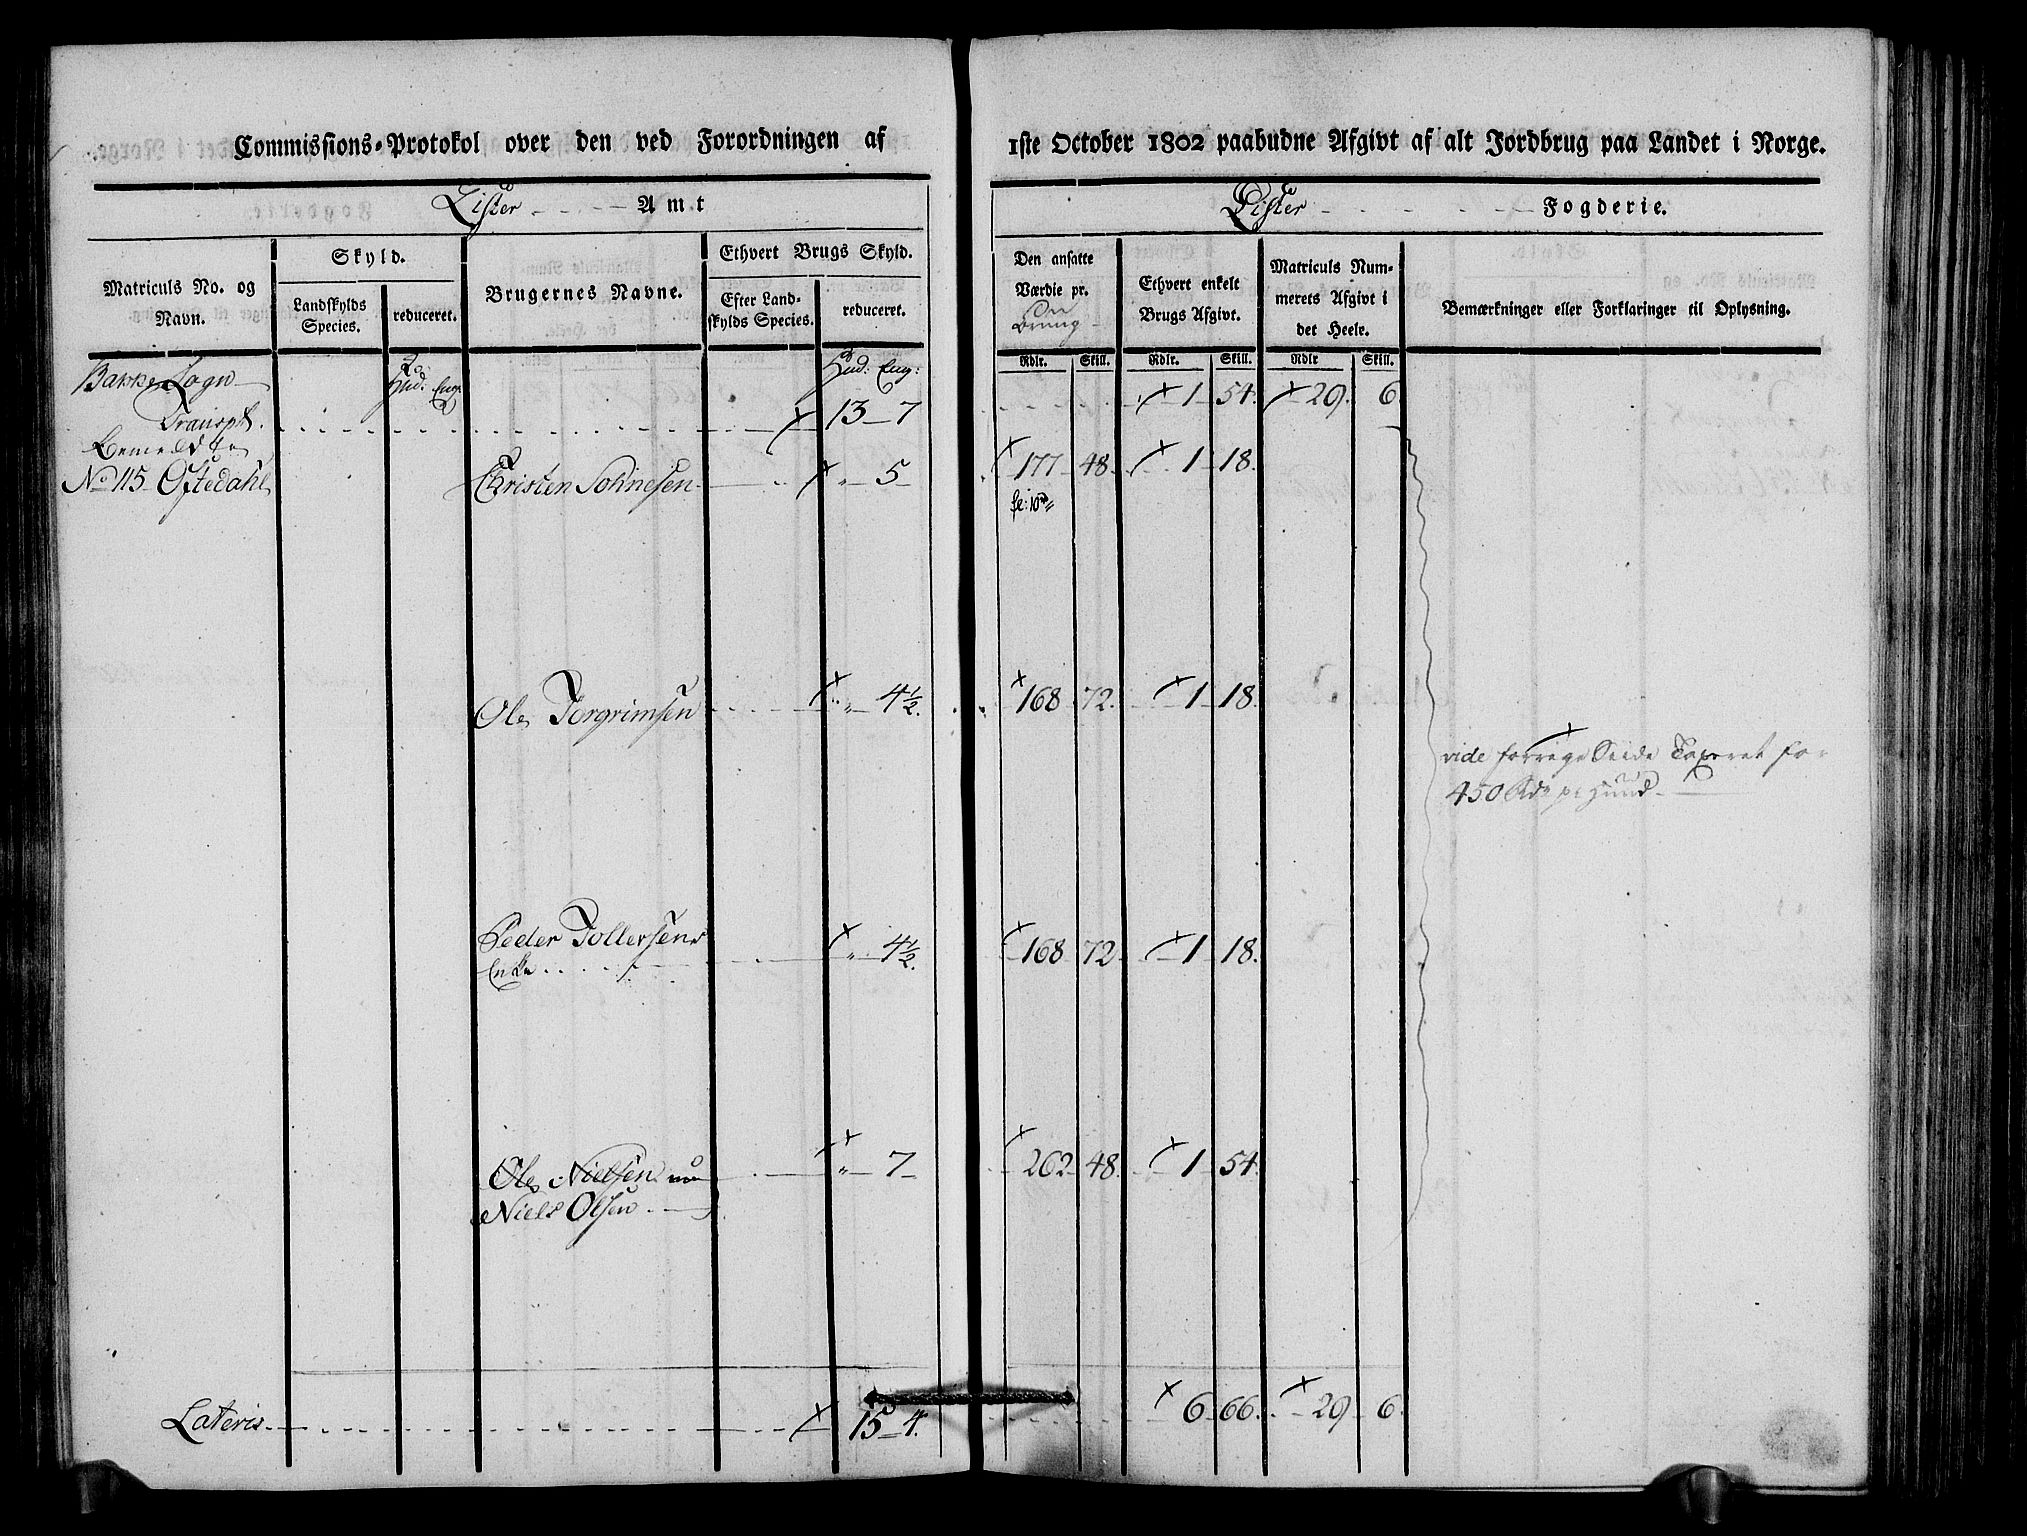 Commissions-Protokol over den ved Forordningen af 1ste October 1802 paabudne Afgivt af alt Jordbrug paa Landet i Norge.
Lister Amt
Lister Fogderie.
Matriculs No. og Navn.
Skyld.
Landskylds Species.
reduceret.
Brugernes Navne.
Ethvert Brugs Skyld.
Efter Landskylds Species.
reduceret.
Den ansatte Værdie pr. Brug
Ethvert enkelt Brugs Afgivt.
Matriculs Nummerets Afgivt i det Heele.
Bemærkninger eller Forklaringer til Oplysning.
Rdlr. Skill. Rdlr. Skill. Rdlr Skill.
Bakke Sogn Hud: Eng: Hud: Eng:
Transpt. 13 - 7 1 54. 29. 6
Bemeldte
No 115 Oftedahl Christen Tohnesen " 5 177 48. 1 18.
Ole Torgrimsen " 4 1/2. 168 72. 1 18.
vide forrige Side Taxeret for
450 Rdr pr Huud
Peder Tollersens " 4 1/2. 168 72 1 18.
Enke
Ole Nielsen nu " 7 262 48. 1 54.
Niels Olsen
Lateris 15 4. 6 66. 29 6.